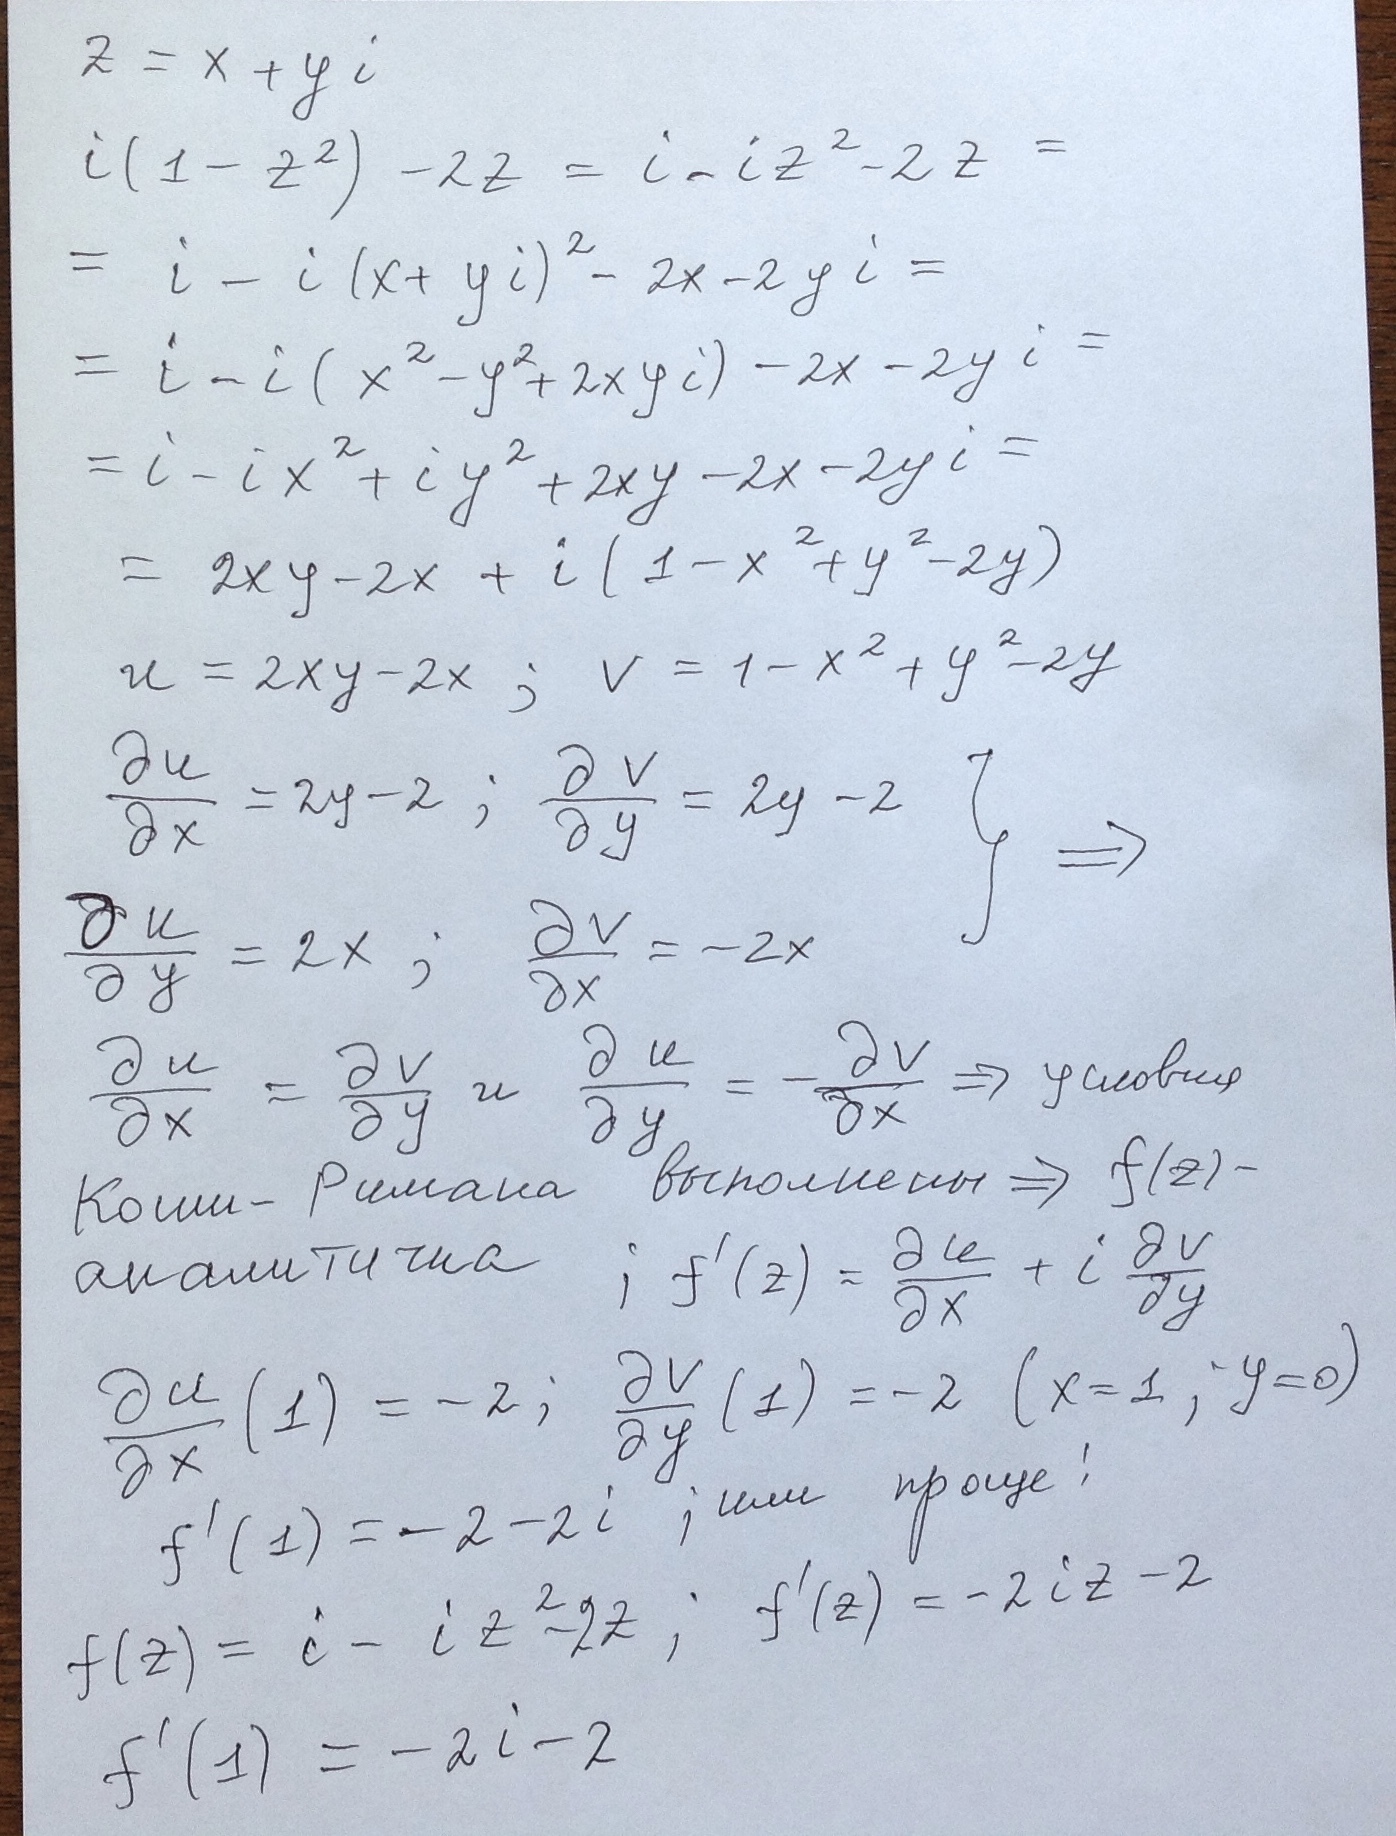 z = x + yi
i(1 - z²) - 2z = i - iz² - 2z =
= i - i(x + yi)² - 2x - 2yi =
= i - i(x² - y² + 2xyi) - 2x - 2yi =
= i - ix² + iy² + 2xy - 2x - 2yi =
= 2xy - 2x + i(1 - x² + y² - 2y)
u = 2xy - 2x ; v = 1 - x² + y² - 2y
∂u/∂x = 2y - 2 ; ∂v/∂y = 2y - 2 } ⇒
∂u/∂y = 2x ; ∂v/∂x = -2x
∂u/∂x = ∂v/∂y и ∂u/∂y = -∂v/∂x ⇒ условия
Коши-Римана выполнены ⇒ f(z) -
аналитична ; f'(z) = ∂u/∂x + i ∂v/∂y
∂u/∂x (1) = -2 ; ∂v/∂y (1) = -2 (x = 1 ; y = 0)
f'(1) = -2 - 2i ; или проще :
f(z) = i - iz² - 2z ; f'(z) = -2iz - 2
f'(1) = -2i - 2